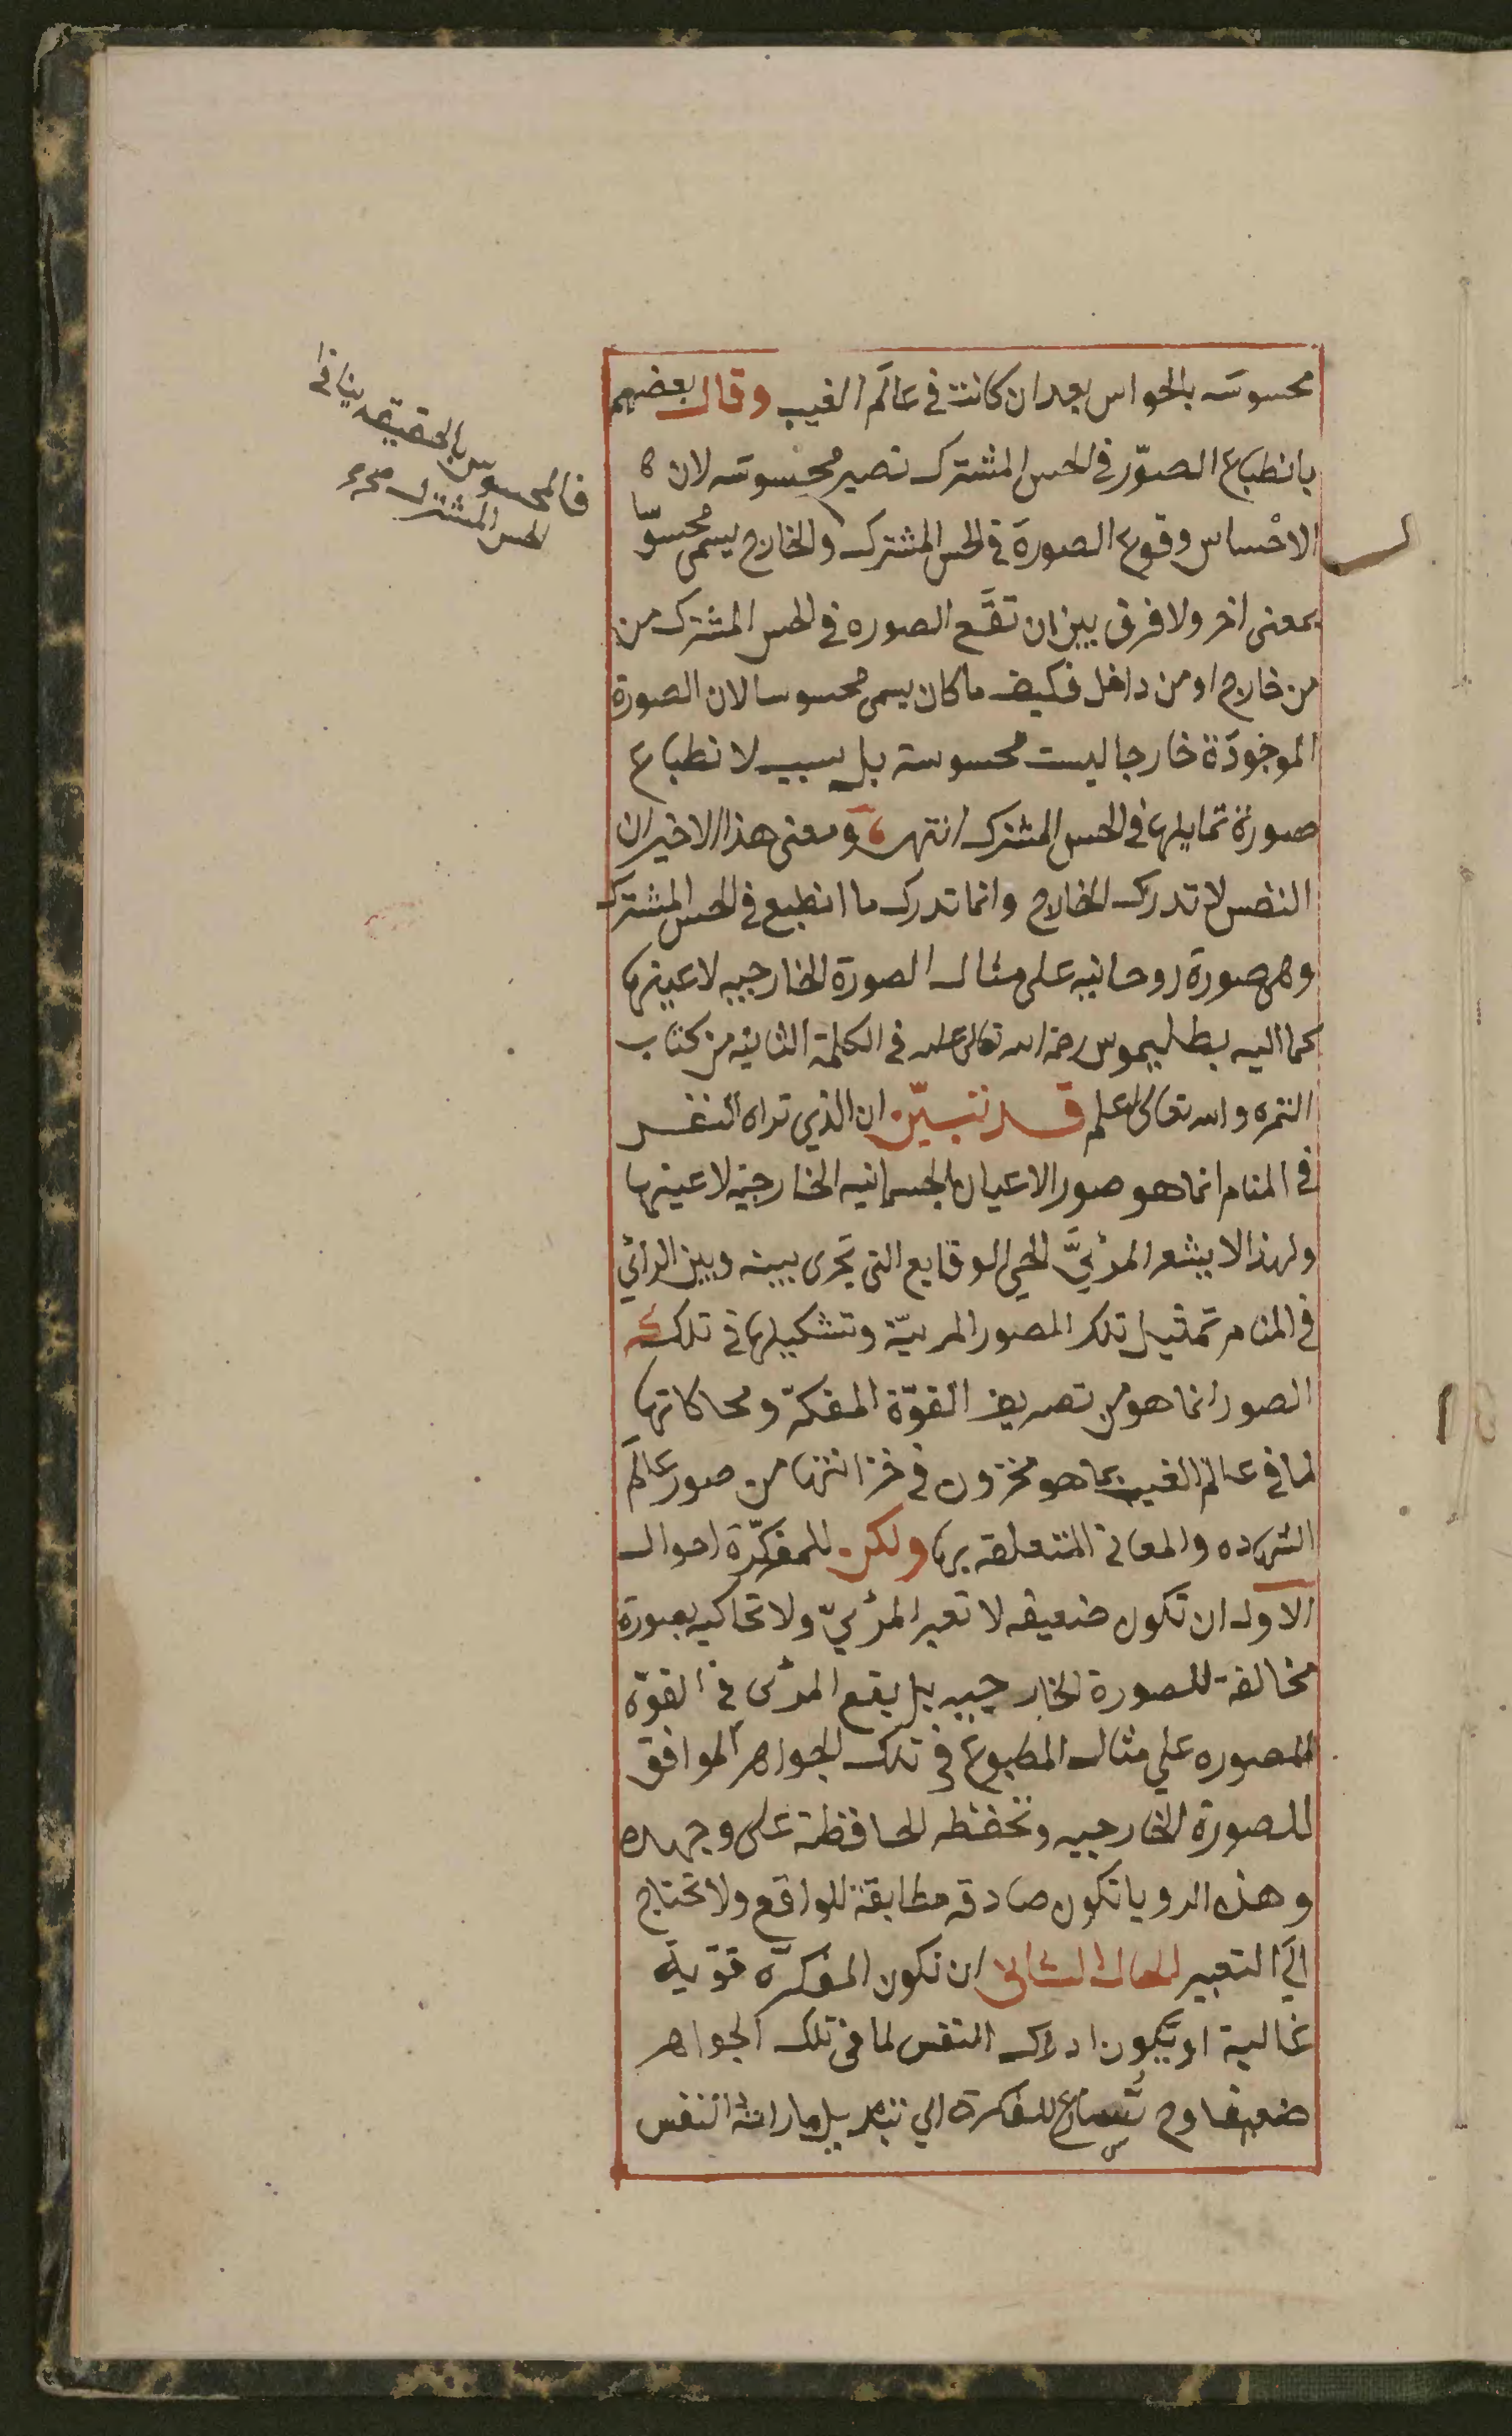 محسوسه بالحواس بعد ان كانت في عالم الغيب وقال بعضهم
بانطباع الصوّر في الحس المشترك تصير محسوسه لان
الاحساس وقوع الصورة في الحس المشترك والخارج يسمى محسوسا
بمعنى اخر ولا فرق بين ان تقَع الصوره في الحس المشترك من
من خارج او من داخل فكيف ما كان يسمى محسوسا لان الصورة
الموجودَة خارجا ليست محسوسة بل سبب لانطباع
صورة تماثلها في الحس المشترك انتهى ومعنى هذا الاخير ان
النفس لا تدرك الخارج وانما تدرك ما انطبع في الحس المشترك
وهي صورة روحانيه على مثال الصورة الخارجيه لا عينها
كما اليه بطليموس رحمة الله تعالى عليه في الكلمة الثانيه من كتاب
الثمره والله تعالى اعلم قد تبيّن ان الذي تراه النفس
في المنام انما هو صور الاعيان الجسمانيه الخارجية لا عينها
ولهذا لا يشعر المرئيَّ الحي الوقايع التي تجرى بينه وبين الرائي
في المنام تمثيل تلك الصور المربيّة وتشكيلها في تلك
الصور انما هو من تصريف القوّة المفكرّة ومحاكاتها
لما في عالم الغيب بما هو مخزون في خزانتها من صور عالم
الشهاده والمعاني المتعلقه بها ولكن للمفكرّة احوال
الاول ان تكون ضعيفه لا تعبر المرئيّ ولا تحاكيه بصورة
مخالفة للصورة الخارجيه بل يقع المرئى في القوّة
المصوره علي مثال المطبوع في تلك الجواهر الموافق
للصورة الخارجيه وتحفظه الحافظة على وجهه
وهذه الرويا تكون صادقه مطابقة للواقع ولا تحتاج
الي التعبير الحال الثاني ان تكون المفكرّة قوّية
غالبة او يكون ادراك النفس لما في تلك الجواهر
ضعيفا وح تسارع المفكرة الي تبديل ما راته النفس
فالمحسوس بالحقيقه ينافي
الحس المشترك